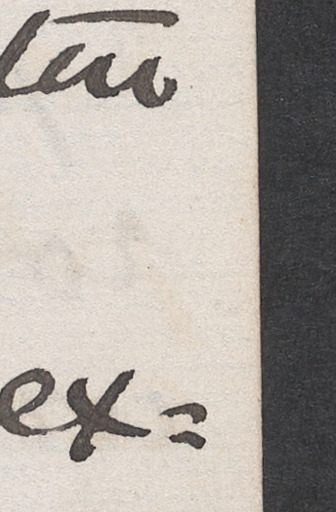 ten
ex=